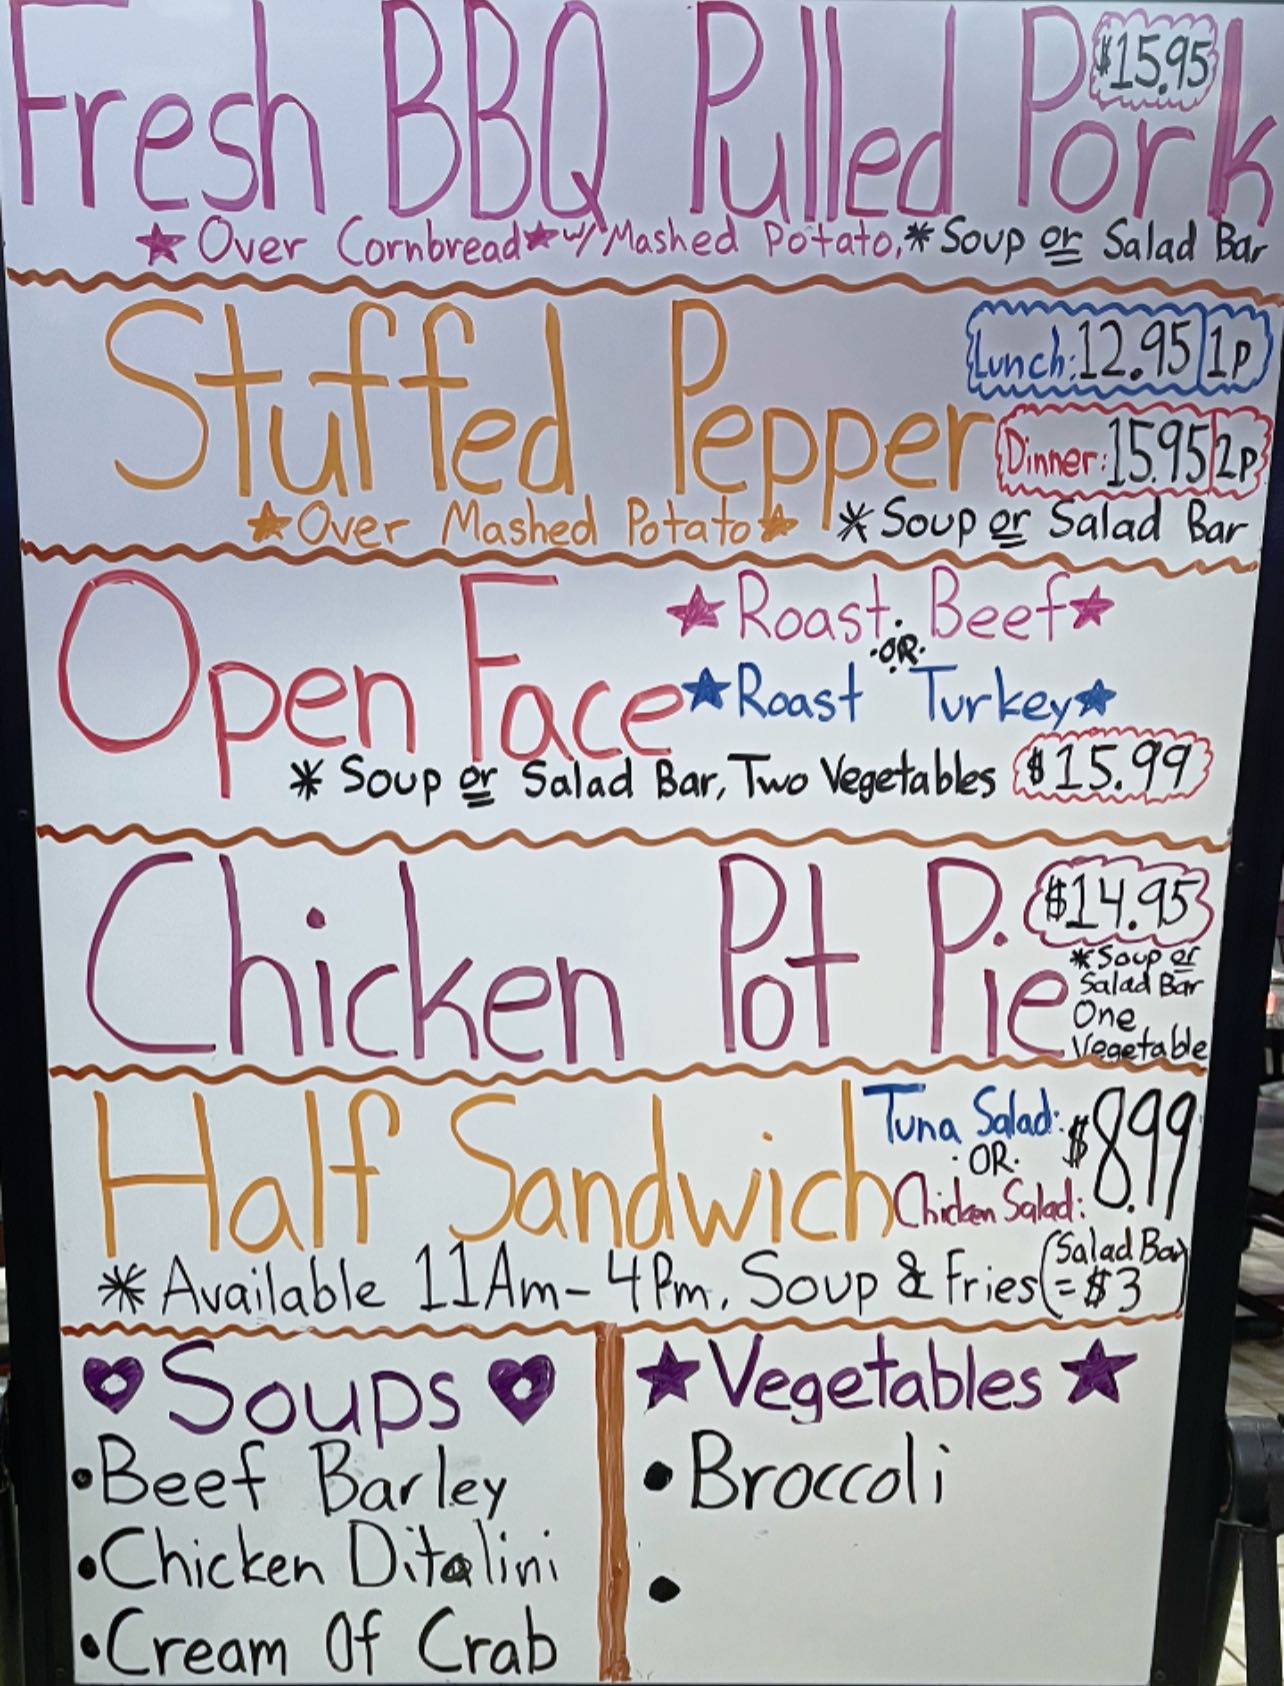 Fresh BBQ Pulled Pork $15.95
Over Cornbread w/ Mashed Potato, *Soup or Salad Bar
Stuffed Pepper
Lunch: 12.95 1P
Dinner: 15.95 2P
Over Mashed Potato *Soup or Salad Bar
Open Face
Roast Beef
·OR·
Roast Turkey
* Soup or Salad Bar, Two Vegetables $15.99
Chicken Pot Pie
$14.95
*Soup or
Salad Bar
One
Vegetable
Half Sandwich
Tuna Salad:
·OR·
Chicken Salad:
$8.99
*Available 11Am-4Pm, Soup & Fries (Salad Bar
= $3)
Soups
•Beef Barley
•Chicken Ditalini
•Cream Of Crab
Vegetables
•Broccoli
•